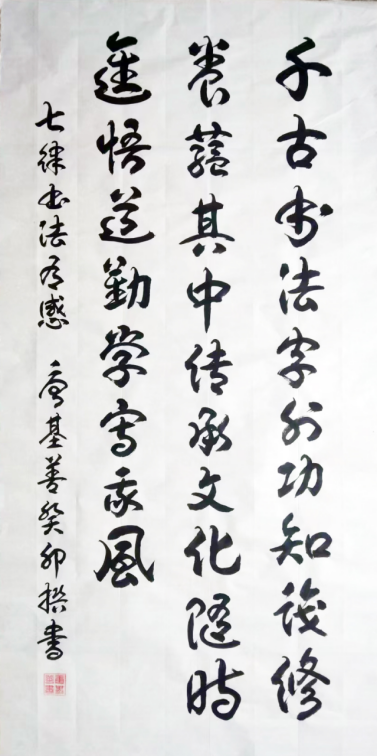 千古书法字外功知识修
养蕴其中传承文化随时
进悟道勤学写我风
七律书法有感 唐基善癸卯撰书